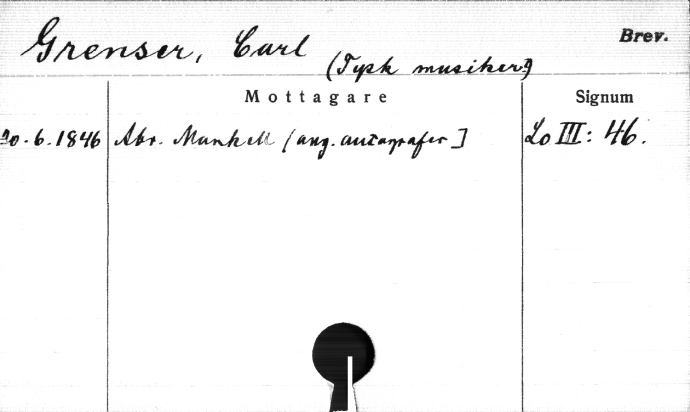 Grenser, Carl
Brev.
(Tysk musiker)
Mottagare
Signum
20.6.1846 Abr. Mankell (ang. autografer] Lo III: 46.